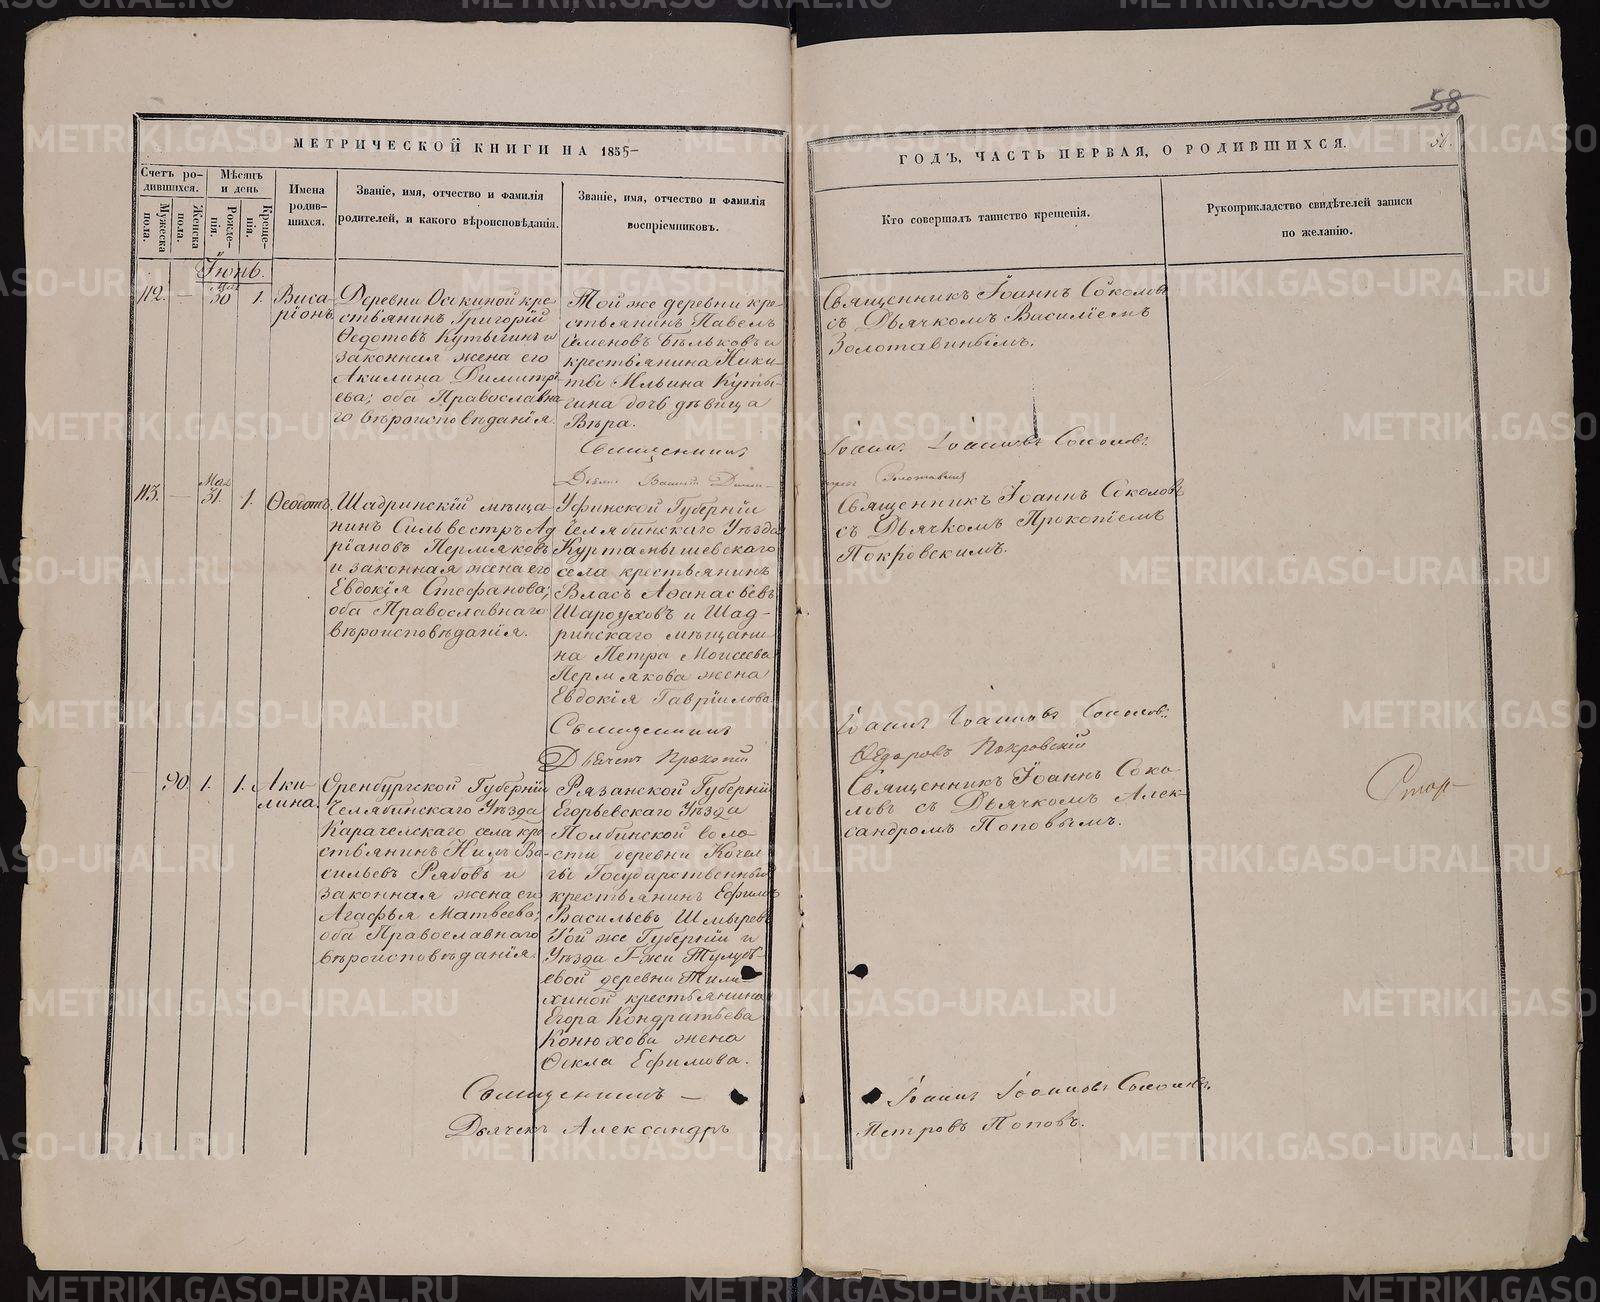 58
МЕТРИЧЕСКОЙ КНИГИ НА 1855
ГОДЪ, ЧАСТЬ ПЕРВАЯ, О РОДИВШИХСЯ.
Счетъ ро-
дившихся.
Мужеска
пола.
Женска
пола.
Мѣсяцъ
и день
Рожде-
нія.
Креще-
нія.
Имена
родив-
шихся.
Званіе, имя, отчество и фамилія
родителей, и какого вѣроисповѣданія.
Званіе, имя, отчество и фамилія
воспріемниковъ.
Кто совершалъ таинство крещенія.
Рукоприкладство свидѣтелей записи
по желанію.
Іюнь.
112.
—
Мая
30
1.
Виса-
ріонъ
Деревни Осакиной кре-
стьянинъ Григорій
Ѳедотовъ Кутыгинъ и
законная жена его
Акилина Димитрі-
ева; оба Православна-
го вѣроисповѣданія.
Той же деревни кре-
стьянинъ Павелъ
Семеновъ Бѣльковъ и
крестьянина Ники-
ты Ильина Куты-
гина дочь дѣвица
Вѣра.
Священникъ Іоаннъ Соколовъ
съ Дьячкомъ Василіемъ
Золотавинымъ.
Священникъ
Іоаннъ Іоанновъ Соколовъ.
113.
—
Мая
31.
1.
Ѳеодотъ.
Шадринскій мѣща-
нинъ Сильвестръ Ад-
ріановъ Пермяковъ
и законная жена его
Евдокія Стефанова;
оба Православнаго
вѣроисповѣданія.
Уфинской Губерніи
Челябинскаго Уѣзда
Куртамышевскаго
села крестьянинъ
Власъ Аѳанасьевъ
Шароуховъ и Шад-
ринскаго мѣщани-
на Петра Моисеева
Пермякова жена
Евдокія Гавріилова
Священникъ Іоаннъ Соколовъ
съ Дьячкомъ Прокопіемъ
Покровскимъ.
Священникъ
Іоаннъ Іоанновъ Соколовъ.
Дьячекъ Прокопій
Ѳедоровъ Покровскій
90.
1.
1.
Аки-
лина.
Оренбургской Губерніи
Челябинскаго Уѣзда
Карачелскаго села кре-
стьянинъ Нилъ Ва-
сильевъ Рябовъ и
законная жена его
Агафья Матвеева;
оба Православнаго
вѣроисповѣданія.
Рязанской Губерніи
Егорьевскаго Уѣзда
Полбинской воло-
сти деревни Кочел-
гы Государственный
крестьянинъ Ефимъ
Васильевъ Шмыревъ
Той же Губерніи и
Уѣзда Г-жи Тулубь-
евой деревни
крестьянина
Егора Кондратьева
Конюхова жена
Ѳекла Ефимова.
Священникъ Іоаннъ Соко-
ловъ съ Дьячкомъ Алек-
сандромъ Поповымъ.
Священникъ —
Іоаннъ Іоанновъ Соколовъ.
Дьячекъ Александръ
Петровъ Поповъ.
METRIKI.GASO-URAL.RU